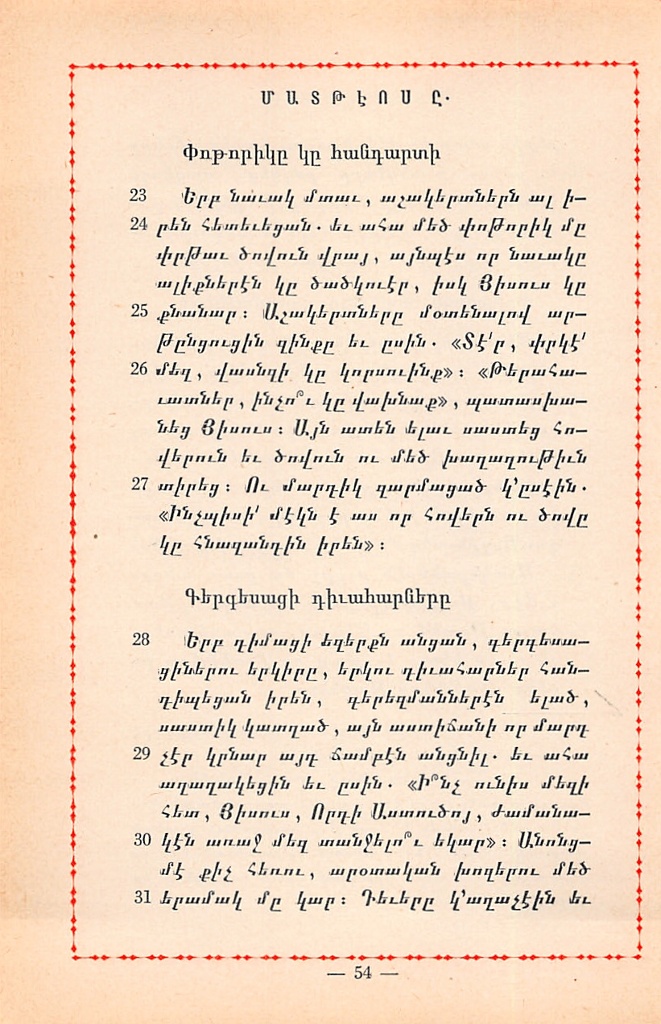 ՄԱՏԹԷՈՍ Ը.
Փոթորիկը կը հանդարտի
23 Երբ նաւակ մտաւ, աշակերտներն ալ ի-
24 րեն հետեւեցան. եւ ահա մեծ փոթորիկ մը
փրթաւ ծովուն վրայ, այնպէս որ նաւակը
ալիքներէն կը ծածկուէր, իսկ Յիսուս կը
25 քնանար: Աշակերտները մօտենալով ար-
թընցուցին զինքը եւ ըսին. «Տէ՛ր, փրկէ՛
26 մեզ, վասնզի կը կորսուինք»: «Թերահա-
ւատներ, ինչո՞ւ կը վախնաք», պատասխա-
նեց Յիսուս: Այն ատեն ելաւ սաստեց հո-
վերուն եւ ծովուն ու մեծ խաղաղութիւն
27 տիրեց: Ու մարդիկ զարմացած կ'ըսէին.
«Ինչպիսի՛ մէկն է աս որ հովերն ու ծովը
կը հնազանդին իրեն»:
Գերգեսացի դիւահարները
28 Երբ դիմացի եզերքն անցան, գերգեսա-
ցիներու երկիրը, երկու դիւահարներ հան-
դիպեցան իրեն, գերեզմաններէն ելած,
սաստիկ կատղած, այն աստիճանի որ մարդ
29 չէր կրնար այդ ճամբէն անցնիլ. եւ ահա
աղաղակեցին եւ ըսին. «Ի՞նչ ունիս մեզի
հետ, Յիսուս, Որդի Աստուծոյ, ժամանա-
30 կէն առաջ մեզ տանջելո՞ւ եկար»: Անոնց-
մէ քիչ հեռու, արօտական խոզերու մեծ
31 երամակ մը կար: Դեւերը կ'աղաչէին եւ
— 54 —